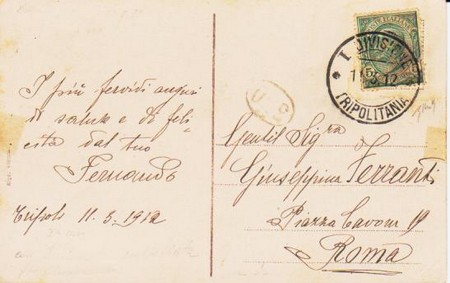 I più fervidi auguri
di salute e di feli
cita dal tuo
Fernando
Tripoli 11. 3. 1912
POSTE ITALIANE
* I DIVISIONE *
3. 12
TRIPOLITANIA
Gentil Sigra
Giuseppina Ferranti
Piazza Cavour 19
Roma